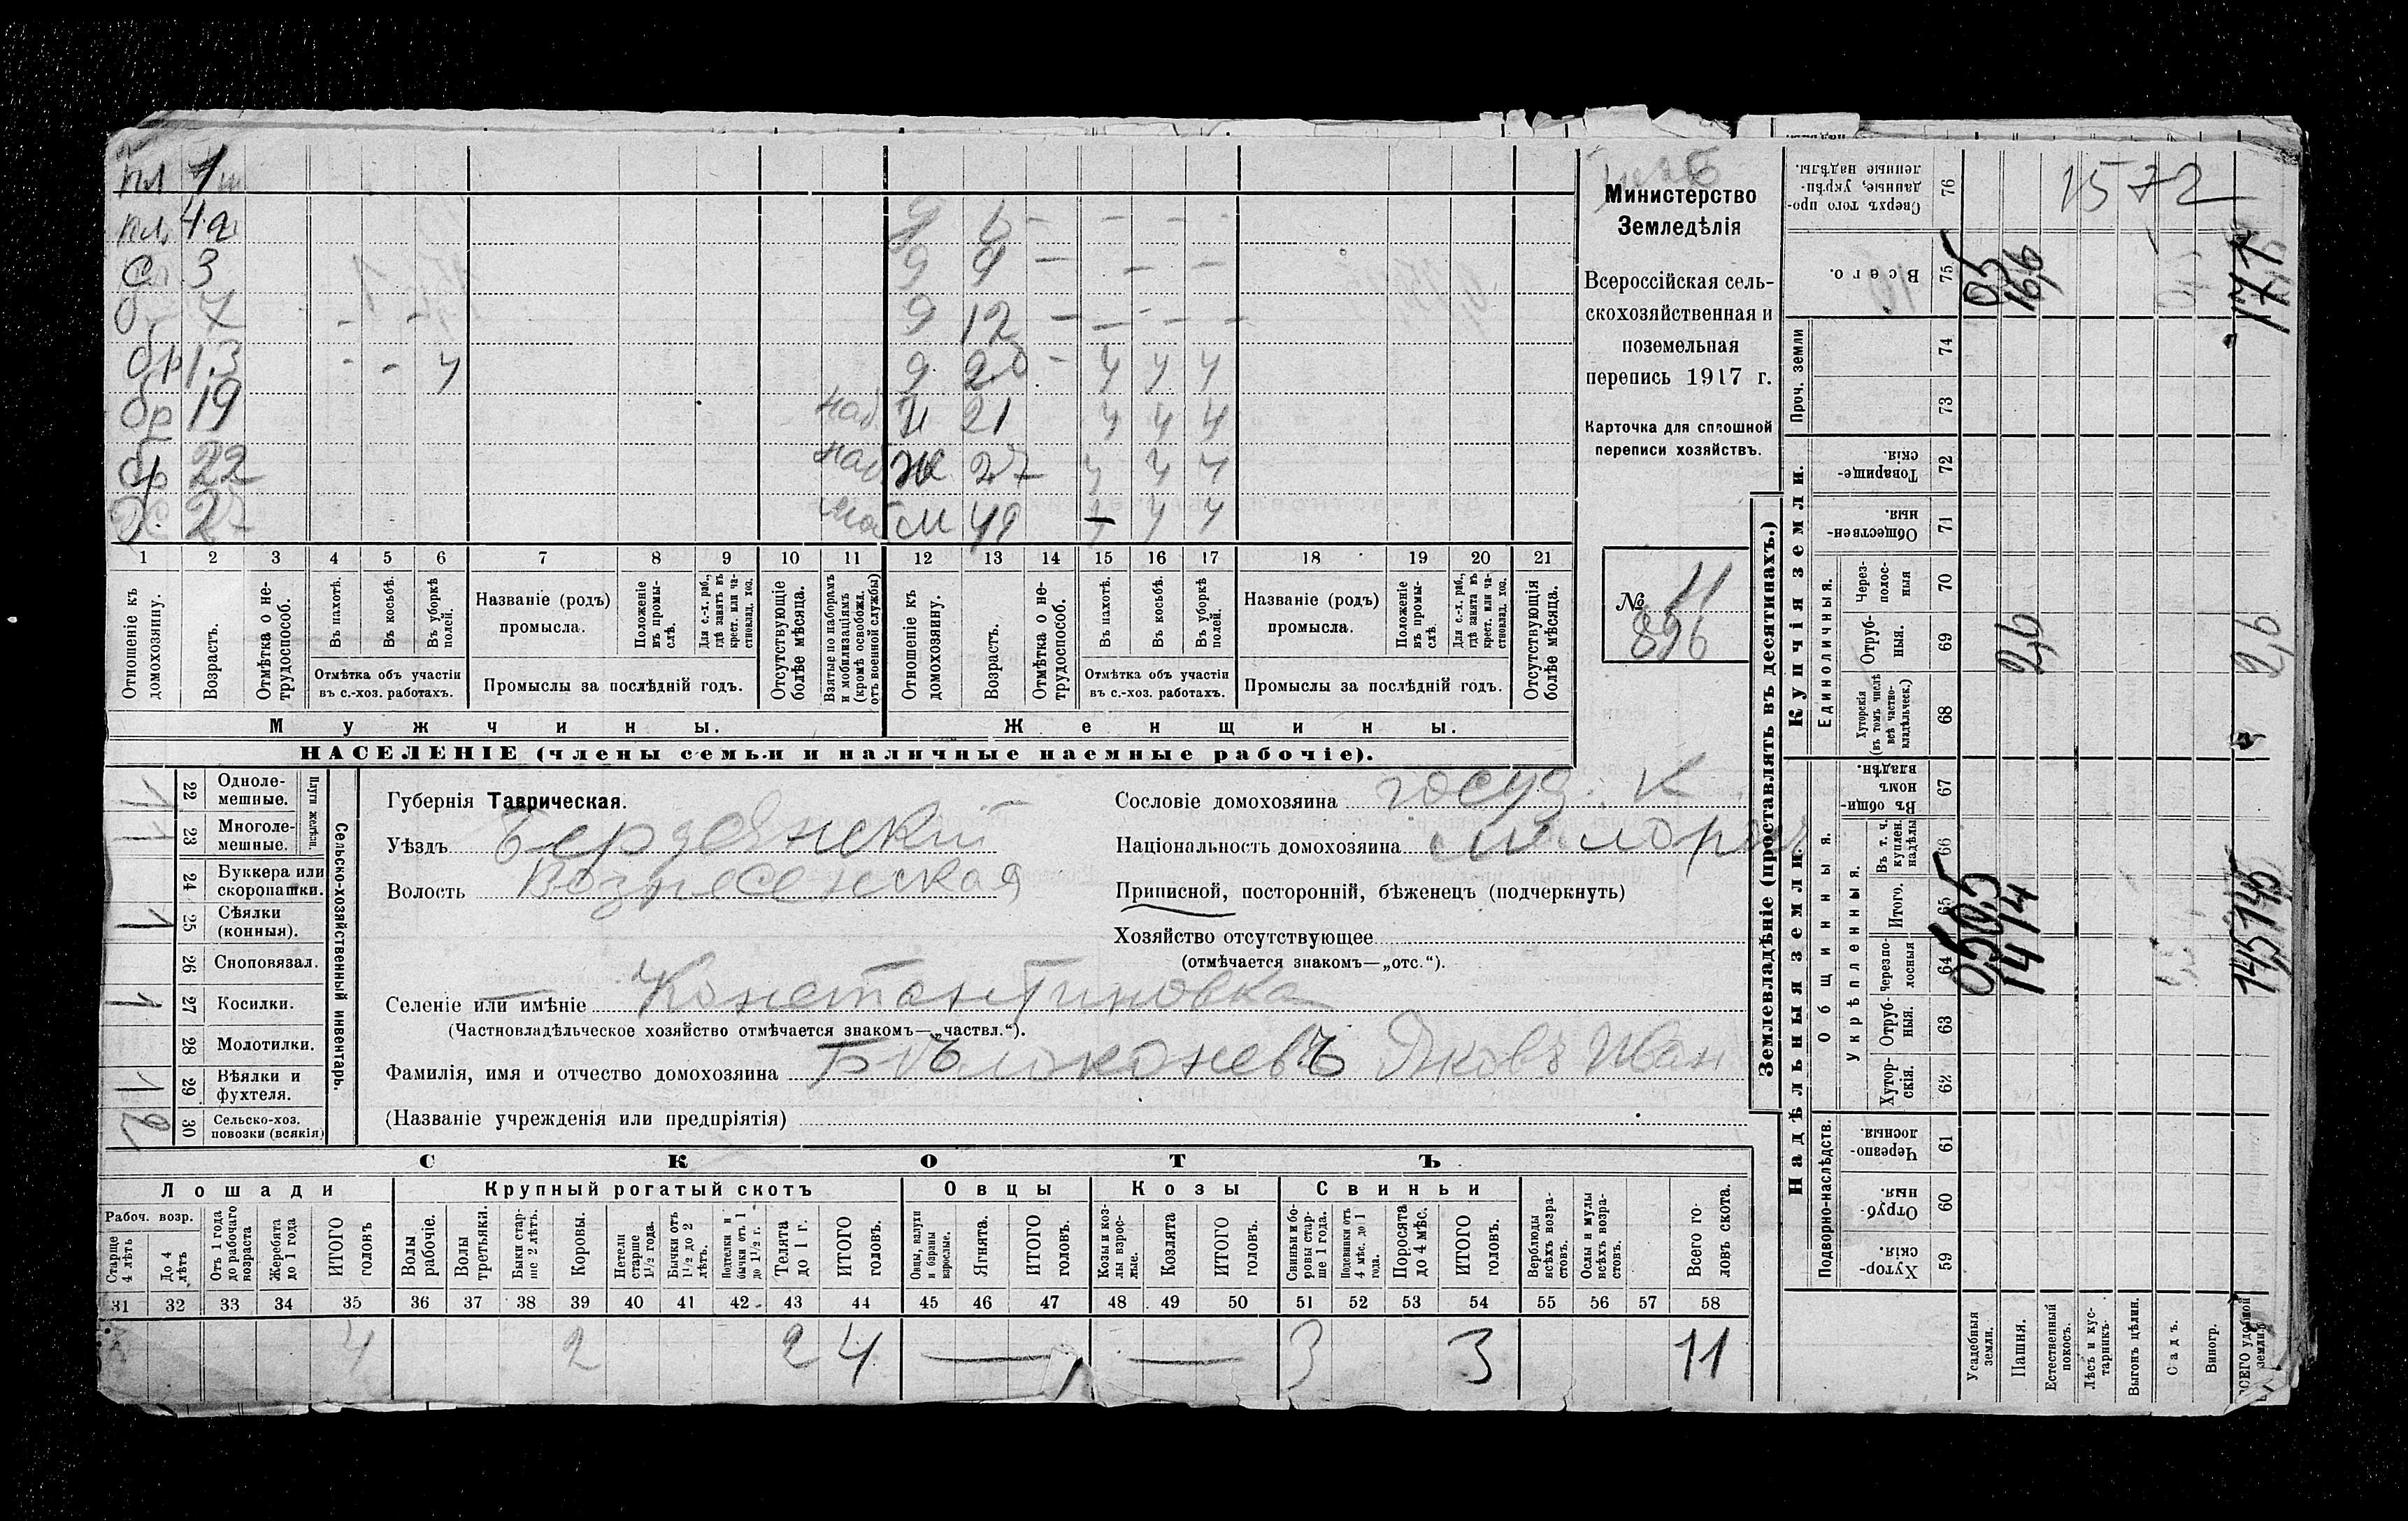 пл 1
пл 1 9 6 - - - -
с 3 9 9 - - -
б 7 - - 9 12 - - - - -
бр 13 - - ч 9 20 - ч ч ч
бр 19 наб 21 ч ч ч
бр 22 наб ж 27 ч ч ч
наб м 49 ч ч ч
1 2 3 4 5 6 7 8 9 10 11 12 13 14 15 16 17 18 19 20 21
Отношеніе къ домохозяину.
Возрастъ.
Отмѣтка о нетрудоспособ.
Въ пахотѣ.
Въ косьбѣ.
Въ уборкѣ полей.
Отмѣтка объ участіи въ с.-хоз. работахъ.
Названіе (родъ) промысла.
Положеніе въ промыслѣ.
Для с.-х. раб., гдѣ занятъ въ крест. или частновлад. хоз.
Промыслы за послѣдній годъ.
Отсутствующіе болѣе мѣсяца.
Взятые по наборамъ и мобилизаціямъ (кромѣ освобожд. отъ военной службы)
Отношеніе къ домохозяину.
Возрастъ.
Отмѣтка о нетрудоспособ.
Въ пахотѣ.
Въ косьбѣ.
Въ уборкѣ полей.
Отмѣтка объ участіи въ с.-хоз. работахъ.
Названіе (родъ) промысла.
Положеніе въ промыслѣ.
Для с.-х. раб., гдѣ занята въ крест. или частновлад. хоз.
Промыслы за послѣдній годъ.
Отсутствующія болѣе мѣсяца.
Мужчины.
Женщины.
НАСЕЛЕНІЕ (члены семьи и наличные наемные рабочіе).
Министерство
Земледѣлія
Всероссійская сель-
скохозяйственная и
поземельная
перепись 1917 г.
Карточка для сплошной
переписи хозяйствъ.
№ 11
896
Сельско-хозяйственный инвентарь.
Плуги желѣзн.
22 Одноле-
мешные.
1 23 Многоле-
мешные.
24 Буккера или
скоропашки.
1 25 Сѣялки
(конныя).
26 Сноповязал.
1 27 Косилки.
28 Молотилки.
1 29 Вѣялки и
фухтеля.
2 30 Сельско-хоз.
повозки (всякія)
Губернія Таврическая.
Уѣздъ Бердянскій
Волость Вознесенская
Сословіе домохозяина госуд. к
Національность домохозяина м. лорос
Приписной, посторонній, бѣженец (подчеркнуть)
Хозяйство отсутствующее
(отмѣчается знакомъ—„отс.“).
Селеніе или имѣніе Константиновка
(Частновладѣльческое хозяйство отмѣчается знакомъ—„частвл.“).
Фамилія, имя и отчество домохозяина Бѣлоконевъ Яковъ Иван
(Названіе учрежденія или предпріятія)
СКОТЪ
Лошади
Крупный рогатый скотъ
Овцы
Козы
Свиньи
Рабоч. возр.
Старше 4 лѣтъ
До 4 лѣтъ
Отъ 1 года до рабочаго возраста
Жеребята до 1 года
ИТОГО головъ
Волы рабочіе.
Волы третьяки.
Быки старше 2 лѣтъ.
Коровы.
Нетели старше 1½ года.
Бычки отъ 1½ до 2 лѣтъ.
Подтелки и бычки отъ 1 до 1½ г.
Телята до 1 г.
ИТОГО головъ.
Овцы, валухи и бараны взрослые.
Ягнята.
ИТОГО головъ.
Козы и козлы взрослые.
Козлята
ИТОГО головъ.
Свиньи и боровы старше 1 года.
Подсвинки отъ 4 мѣс. до 1 года.
Поросята до 4 мѣс.
ИТОГО головъ.
Верблюды всѣхъ возрастовъ.
Ослы и мулы всѣхъ возрастовъ.
Всего головъ скота.
31 32 33 34 35 36 37 38 39 40 41 42 43 44 45 46 47 48 49 50 51 52 53 54 55 56 57 58
4 2 2 4 — — 3 3 11
Землевладѣніе (проставлять въ десятинахъ.)
Надѣльныя земли.
Купчія земли.
Проч. земли
Подворно-наслѣдств.
Общинныя.
Укрѣпленныя.
Единоличныя.
Хуторскія. 59
Отрубныя. 60
Черезполосныя. 61
Хуторскія. 62
Отрубныя. 63
Черезполосныя 64
Итого. 65
Въ т. ч. куплен. надѣлы 66
Въ общинномъ владѣн. 67
Хуторскія (въ томъ числѣ всѣ частновладѣльческ.) 68
Отрубныя. 69
Черезполосныя 70
Общественныя. 71
Товарищескія. 72
73
74
Всего. 75
Сверхъ того проданные, укрѣпленные надѣлы. 76
Усадебныя земли. 0,5 0,5
Пашня. 14,14 2,6 16,6
Естественный покосъ.
Лѣсъ и кустарникъ.
Выгонъ цѣлин.
Садъ.
Виногр.
ВСЕГО удобной земли 2,6
1572